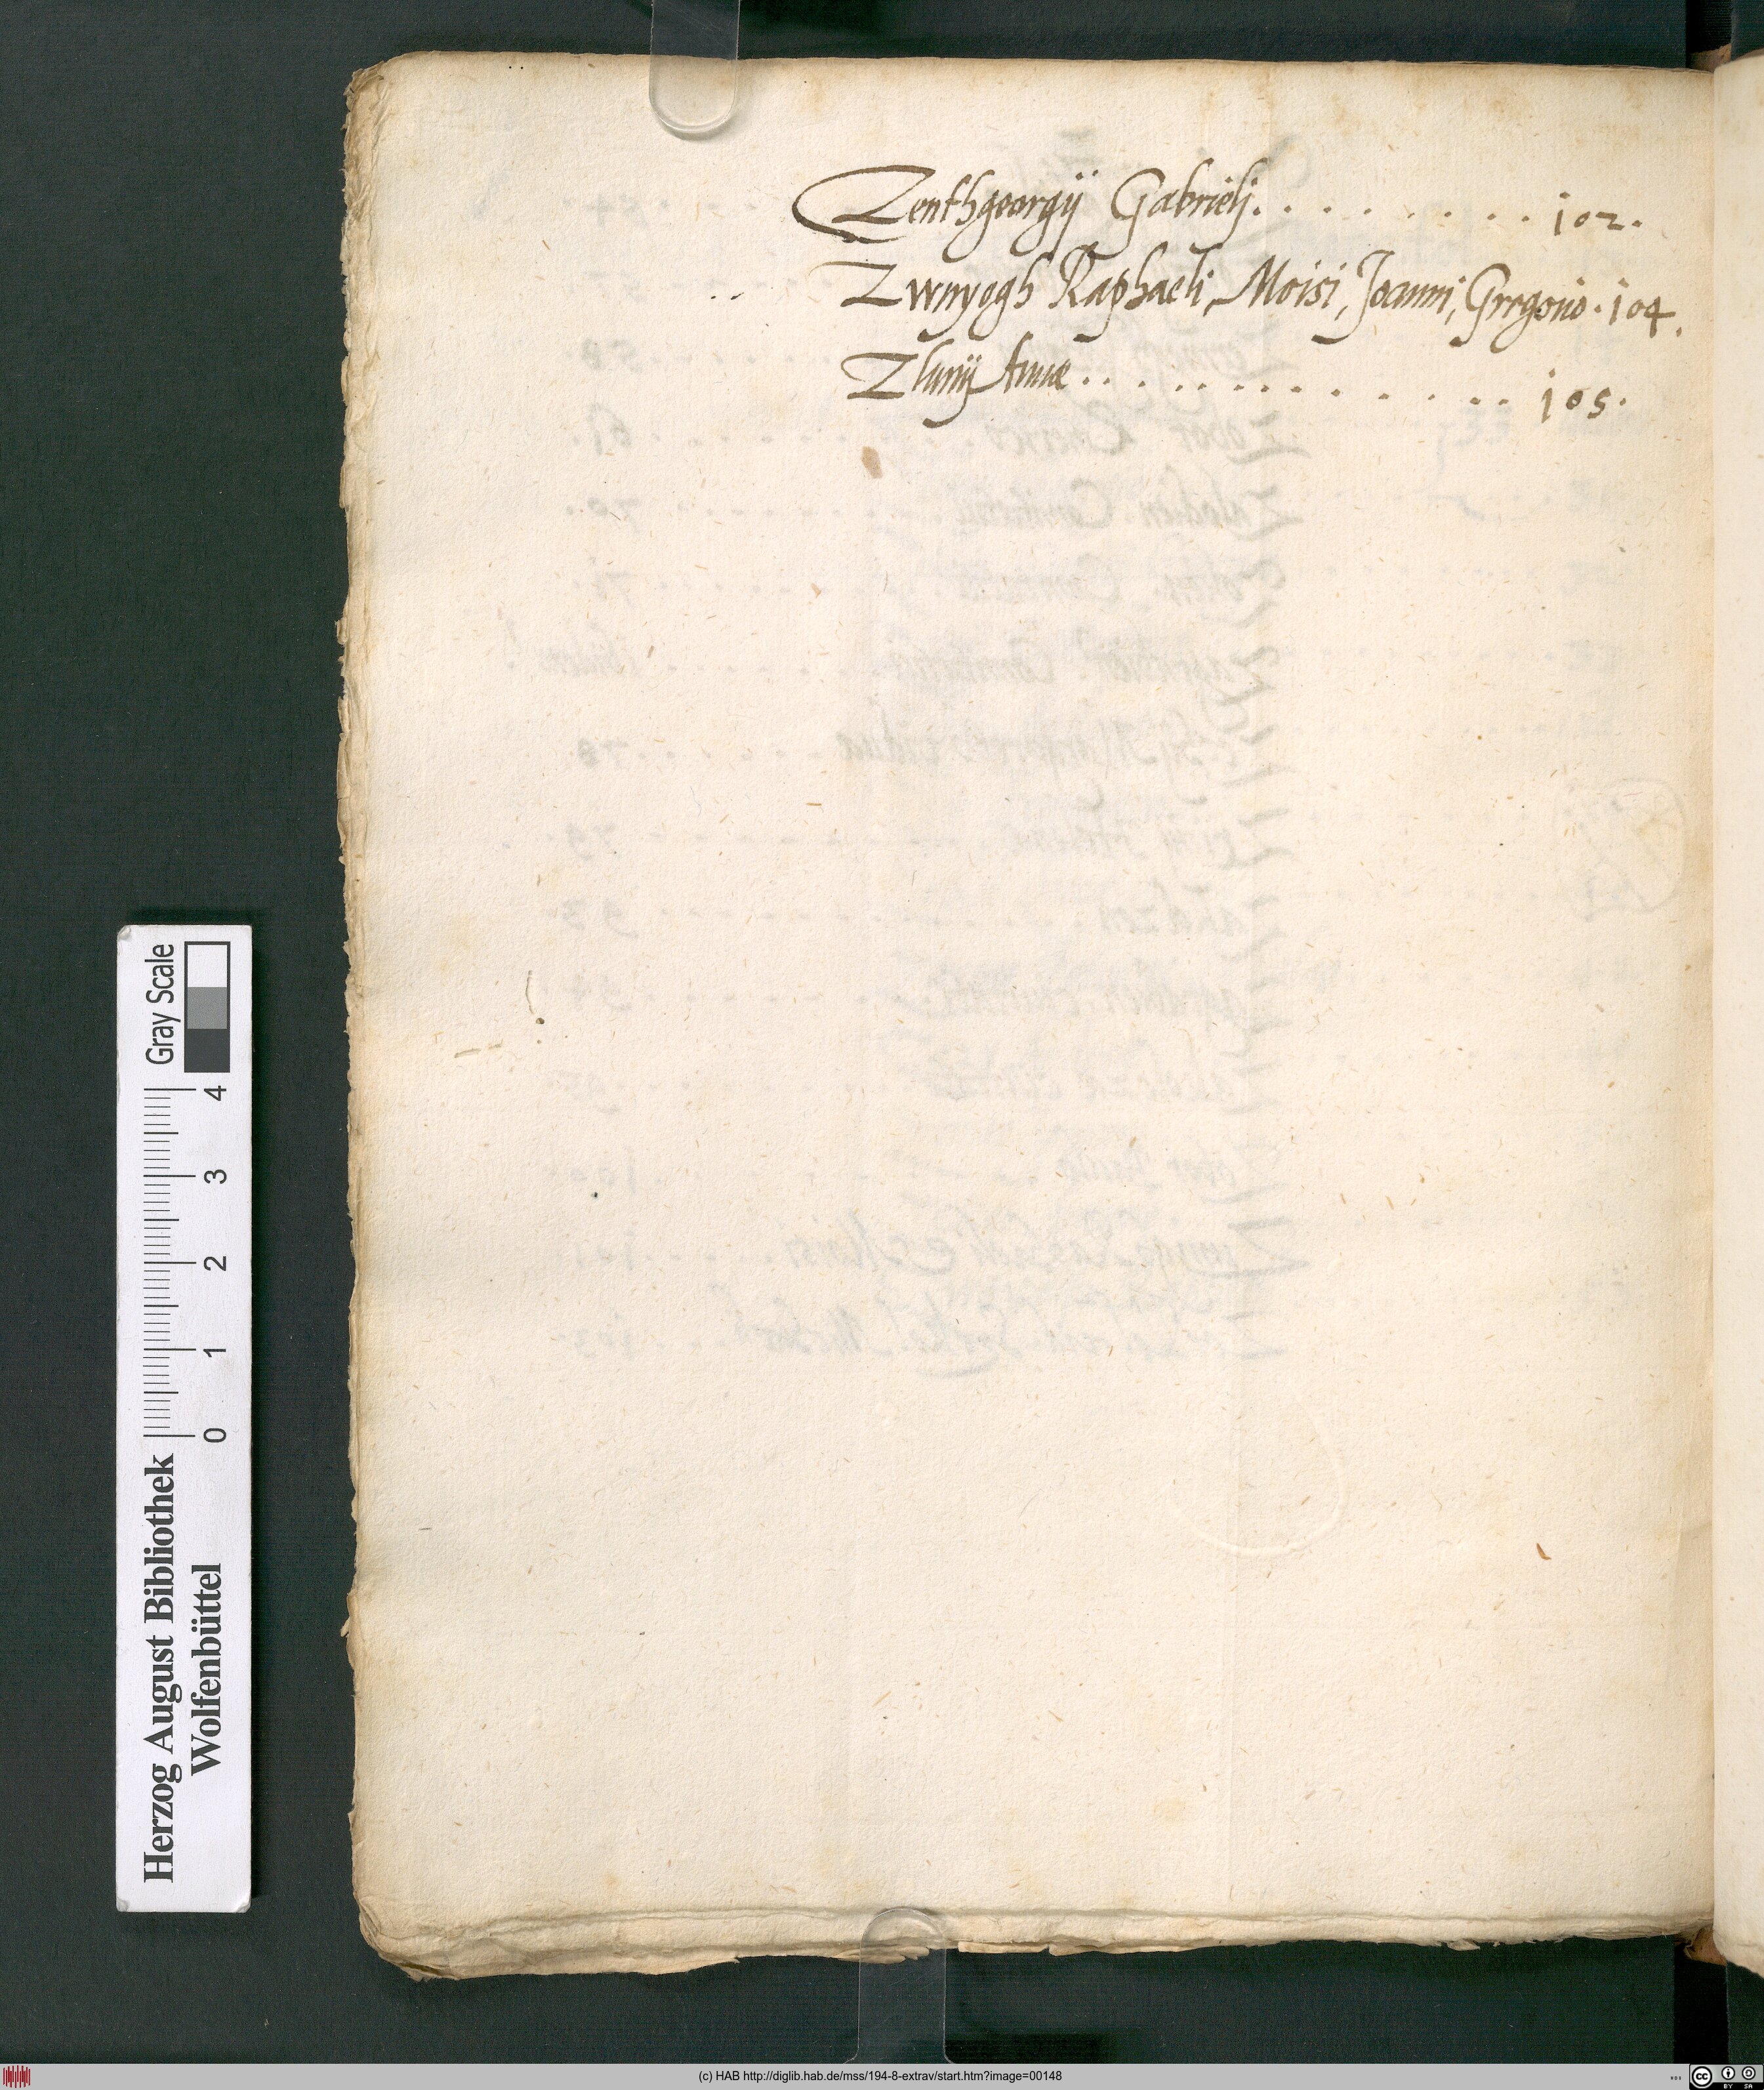 Zenthgeorgÿ Gabrielj. . . . . . . . . 102.
Zwnyogh Raphaeli, Moisi, Joanni, Gregorio. 104.
Zlunÿ Annæ . . . . . . . . . . . . . . 105.
Gray Scale
4
3
2
1
0
Herzog August Bibliothek
Wolfenbüttel
(c) HAB http://diglib.hab.de/mss/194-8-extrav/start.htm?image=00148
cc BY SA